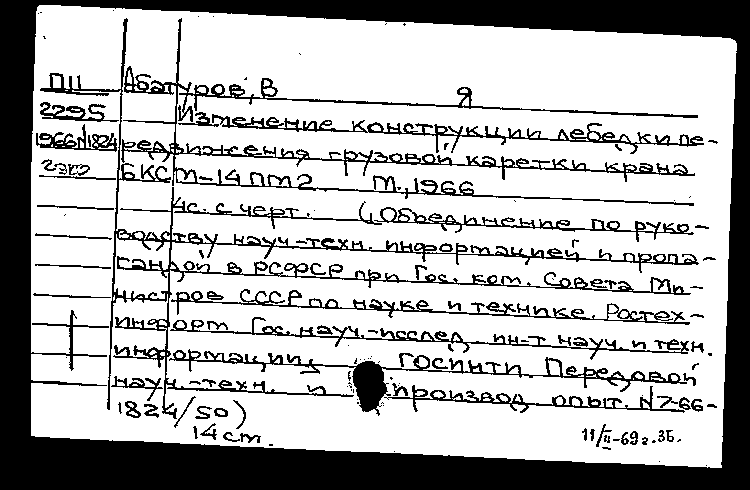 П11 Абатуров, В Я
2295 Изменение конструкции лебедки пе-
1966/1824 редвижения грузовой каретки крана
2экз БКСМ-14ПМ2 М., 1966
4с. с черт. (Объединение по руко-
водству науч-техн. информацией и пропа-
гандой в РСФСР при Гос. ком. Совета Ми-
нистров СССР по науке и технике. Ростех-
информ Гос. науч.-исслед. ин-т науч. и техн.
информации ГОСИНТИ. Передовой
науч.-техн. и производ. опыт. N7-66-
1824/50)
14см.
11/II-69г. ЗБ.